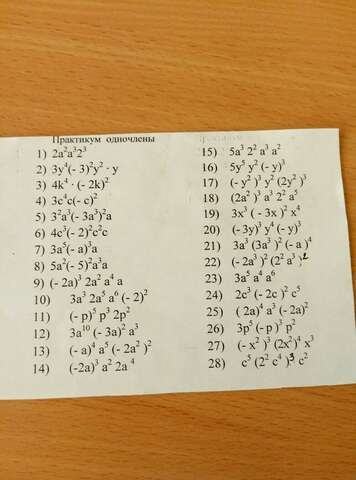 Практикум одночлены
1) 2a²a³2³
2) 3y⁴(- 3)²y² · y
3) 4k⁴ · (- 2k)²
4) 3c⁴c(- c)²
5) 3²a³(- 3a³)²a
6) 4c³(- 2)²c²c
7) 3a⁵(- a)³a
8) 5a²(- 5)²a³a
9) (- 2a)³ 2a² a⁴ a
10) 3a³ 2a⁵ a⁶ (- 2)²
11) (- p)⁵ p³ 2p²
12) 3a¹⁰ (- 3a)² a³
13) (- a)⁴ a⁵ (- 2a² )²
14) (-2a)³ a² 2a ⁴
15) 5a³ 2² a³ a²
16) 5y⁵ y² (- y)³
17) (- y² )³ y² (2y² )³
18) (2a² )³ a³ 2² a⁵
19) 3x³ ( - 3x )² x⁴
20) (- 3y)³ y⁴ (- y)³
21) 3a³ (3a³ )² (- a )⁴
22) (- 2a³ )² (2² a³ )²
23) 3a⁵ a⁴ a⁶
24) 2c³ (- 2c )² c⁵
25) ( 2a⁴) a³ (- 2a)²
26) 3p⁵ (-p )³ p²
27) (- x² )³ (2x² )⁴ x³
28) c⁵ (2² c⁴ )³ c²